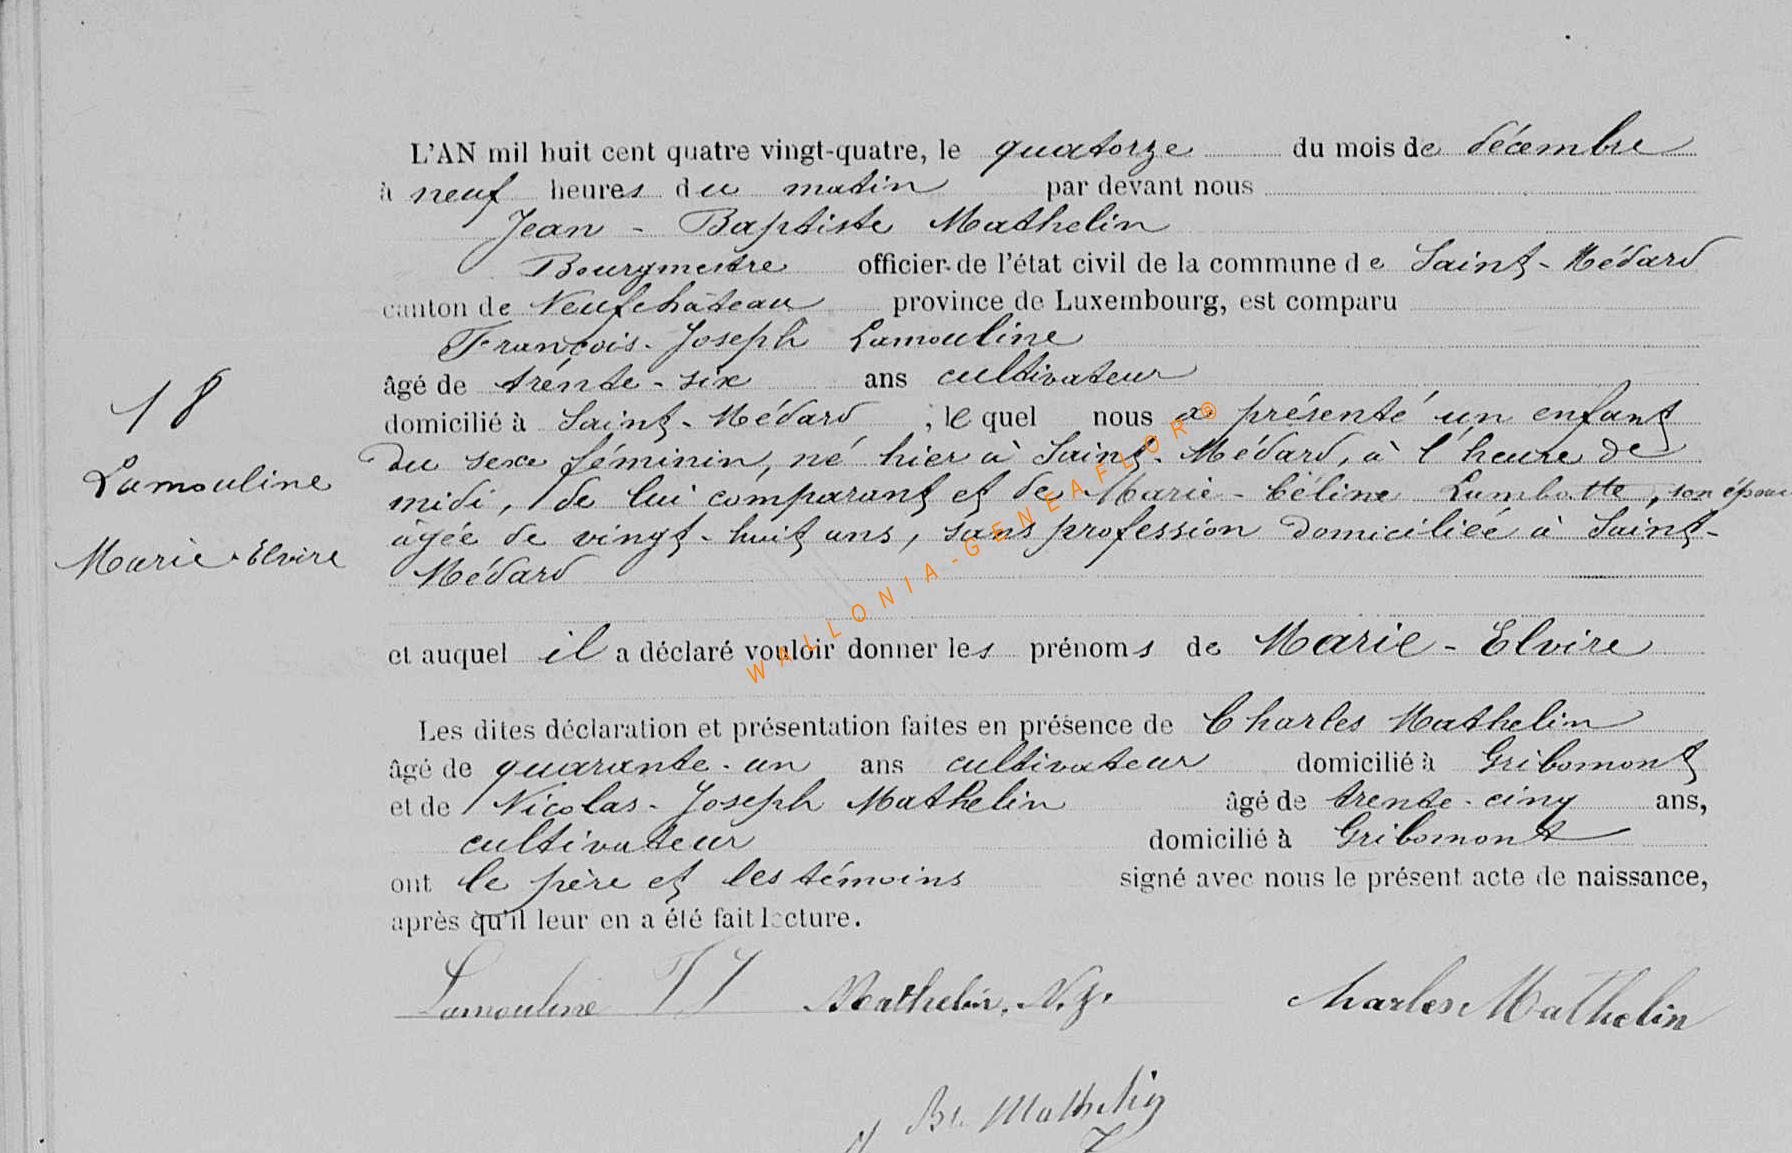 L'AN mil huit cent quatre vingt-quatre, le quatorze du mois de décembre
à neuf heures du matin par devant nous
Jean - Baptiste Mathelin
Bourgmestre officier de l'état civil de la commune de Saint-Médard
canton de Neufchâteau province de Luxembourg, est comparu
François-Joseph Lamouline
âgé de trente-six ans cultivateur
domicilié à Saint-Médard, lequel nous a présenté un enfant
du sexe féminin, né hier à Saint-Médard, à l'heure de
midi, de lui comparant et de Marie-Céline Lambotte, son épouse
âgée de vingt-huit ans, sans profession domiciliée à Saint-
Médard
et auquel il a déclaré vouloir donner les prénoms de Marie-Elvire
Les dites déclaration et présentation faites en présence de Charles Mathelin
âgé de quarante-un ans cultivateur domicilié à Gribomont
et de Nicolas-Joseph Mathelin âgé de trente-cinq ans,
cultivateur domicilié à Gribomont
ont le père et les témoins signé avec nous le présent acte de naissance,
après qu'il leur en a été fait lecture.
18
Lamouline
Marie-Elvire
Lamouline FJ Mathelin, N.J. Charles Mathelin
J Bte Mathelin
WALLONIA-GENEAFLOR®